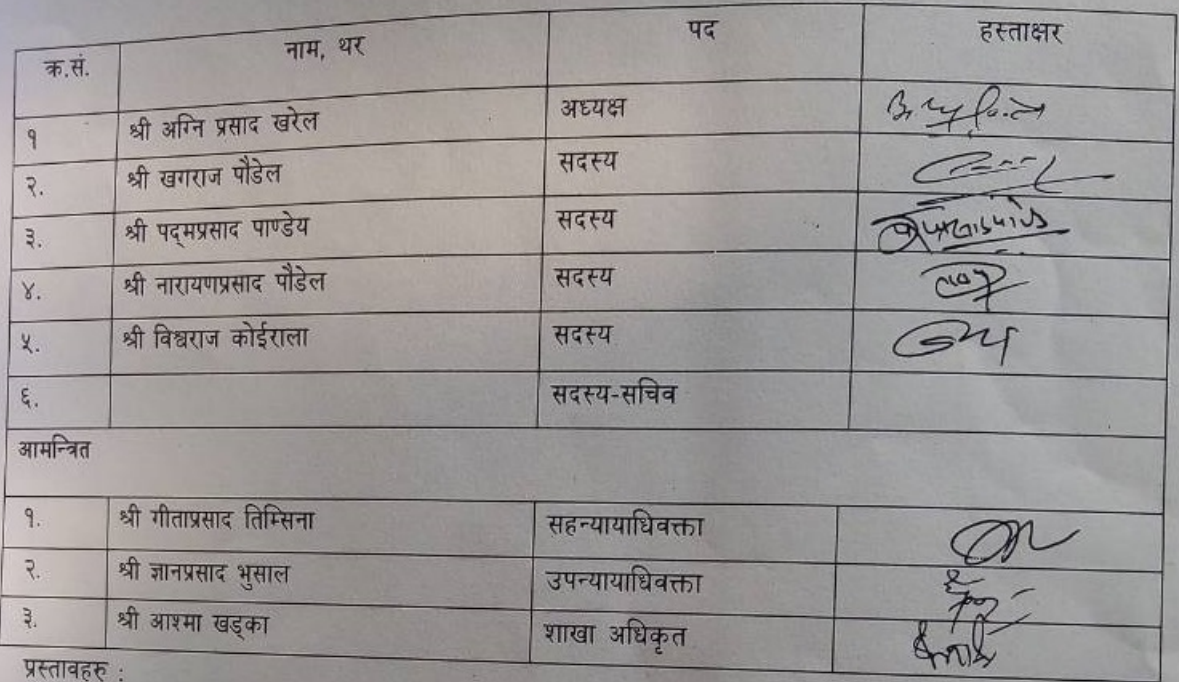 क्र.सं. नाम, थर पद हस्ताक्षर
१ श्री अग्नि प्रसाद खरेल अध्यक्ष
२. श्री खगराज पौडेल सदस्य
३. श्री पद्मप्रसाद पाण्डेय सदस्य
४. श्री नारायणप्रसाद पौडेल सदस्य
५. श्री विश्वराज कोईराला सदस्य
६. सदस्य-सचिव
आमन्त्रित
१. श्री गीताप्रसाद तिम्सिना सहन्यायाधिवक्ता
२. श्री ज्ञानप्रसाद भुसाल उपन्यायाधिवक्ता
३. श्री आश्मा खड्का शाखा अधिकृत
प्रस्तावहरु :